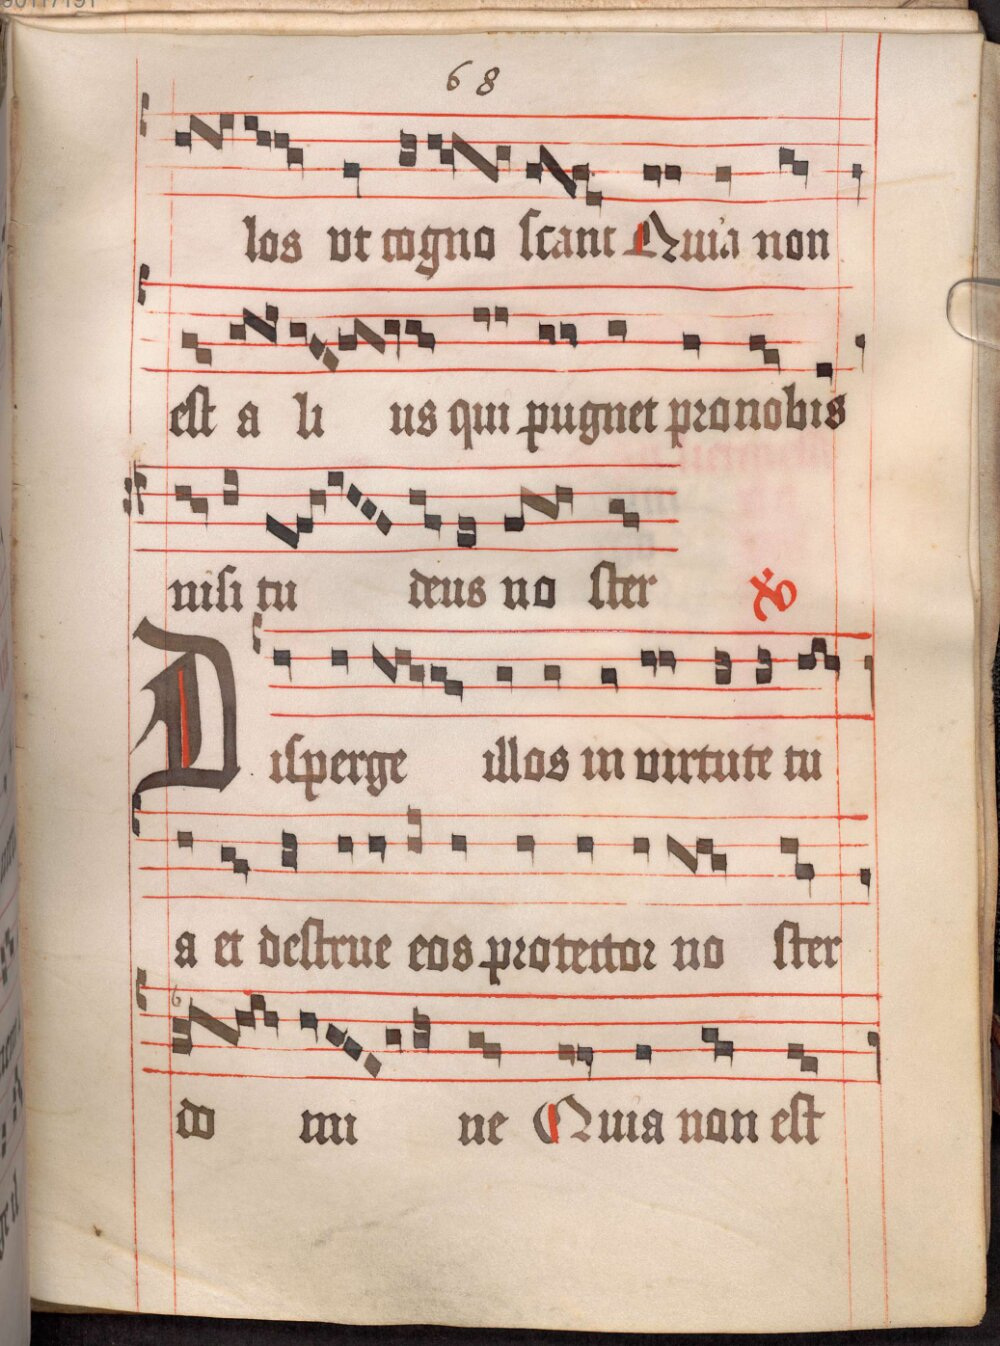 68
los ut cogno scant Quia non
est a li us qui pugnet pro nobis
nisi tu deus no ster ℣
Disperge illos in virtute tu
a et destrue eos protector no ster
do mi ne Quia non est